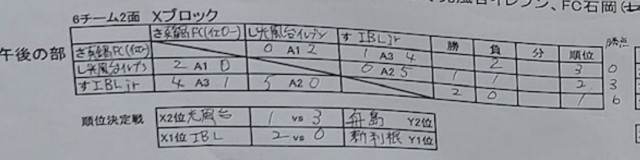 光風台イレブン、FC石岡(士
6チーム2面 Xブロック
午後の部
さ英銘FC(イエロー) L光風台イレブン すIBLjr 勝 負 分 順位 勝点
さ英銘FC(イエロー) 0 A1 2 1 A3 4 2 3 0
L光風台イレブン 2 A1 0 0 A2 5 1 1 2 3
すIBLjr 4 A3 1 5 A2 0 2 0 1 6
順位決定戦 X2位 光風台 1 vs 3 舟島 Y2位
X1位 IBL 2 vs 0 新利根 Y1位